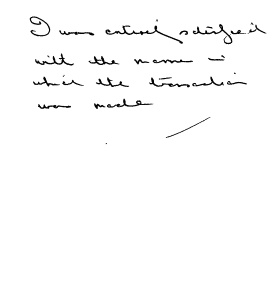 I was entirely satisfied
with the manner in
which the transaction
was made